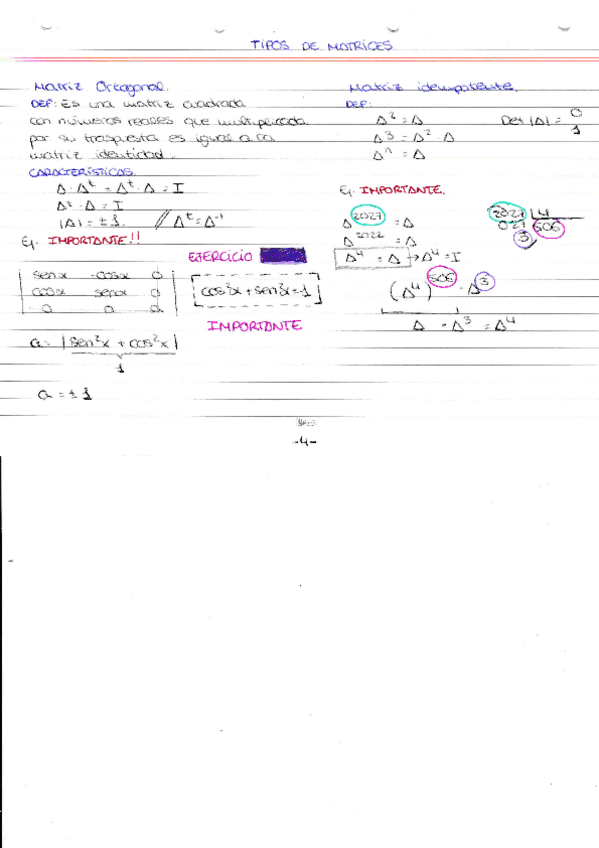 TIPOS DE MATRICES
Matriz Ortogonal.
DEF: Es una matriz cuadrada
con números reales que multiplicada
por su traspuesta es igual a la
matriz identidad.
CARACTERÍSTICAS.
A · A^t = A^t · A = I
A^t · A = I
|A| = ±1 // A^t = A^-1
Ej. IMPORTANTE!!
senx -cosx 0
cosx senx 0
0 0 a
a = |sen²x + cos²x|
1
a = ±1
EJERCICIO
cos²x + sen²x = 1
IMPORTANTE
Matriz idempotente.
DEF:
A² = A
A³ = A² · A
A^n = A
Det |A| = 0
1
Ej. IMPORTANTE.
A^2027 = A
A^2022 = A
A^4 = A → A^4 = I
2027 | 4
027 506
3
(A^4)^506 · A^3
A · A^3 = A^4
-4-